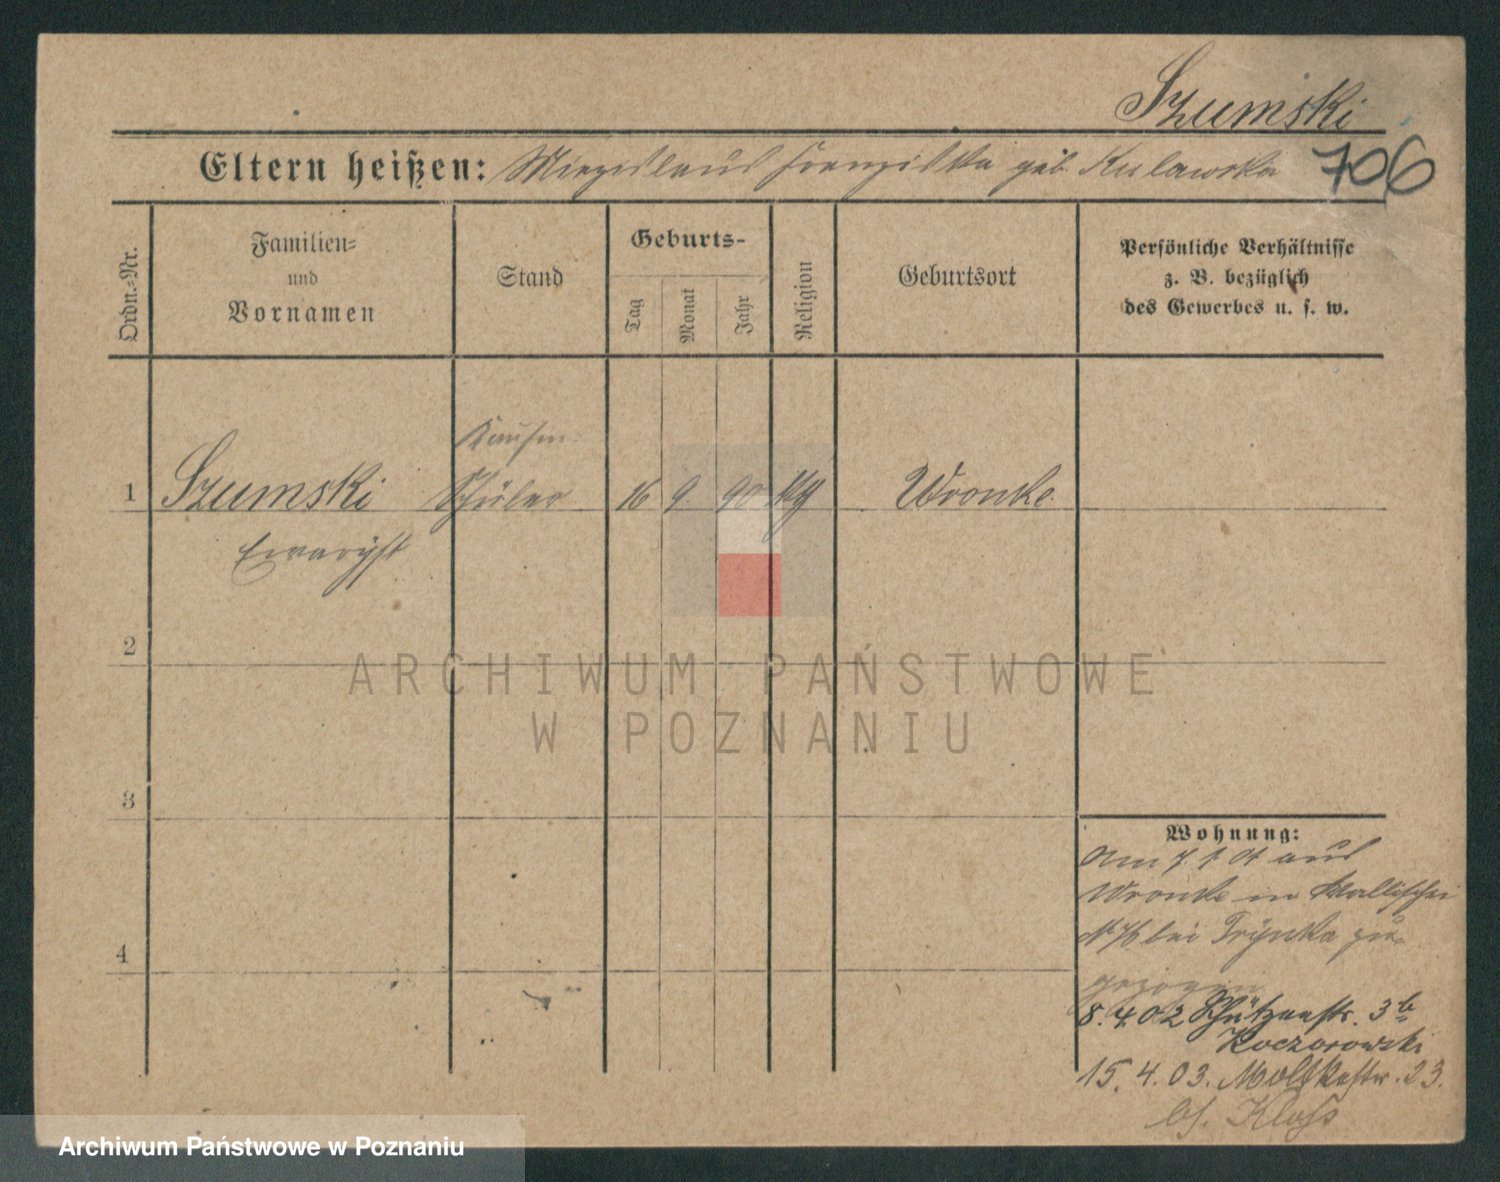 Szumski
Eltern heißen: Miezislaus Franziska geb. Kulawska 706
Ordn.-Nr.
Familien-
und
Vornamen
Stand
Geburts-
Tag
Monat
Jahr
Religion
Geburtsort
Persönliche Verhältnisse
z. B. bezüglich
des Gewerbes u. s. w.
Kaufm.
1 Szumski Schüler 16 9. 90 Wronke
Ewaryst
2
ARCHIWUM PAŃSTWOWE
W POZNANIU
3
Wohnung:
Am 7. 1. 01 aus
Wronke in Wallischei
bei Trynka zu-
4
gezogen
8. 4. 02 Schützenstr. 3b
Koczorowski
15. 4. 03. Moltkestr. 23.
bei Kloss
Archiwum Państwowe w Poznaniu